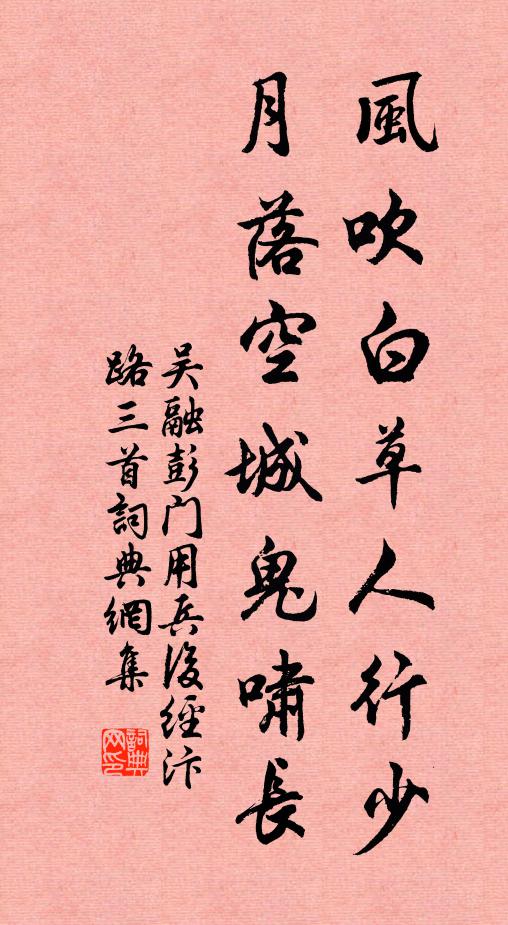 風吹白草人行少
月落空城鬼嘯長
吴融彭门用兵後經汴
路三首詞典網集
詞典
网印